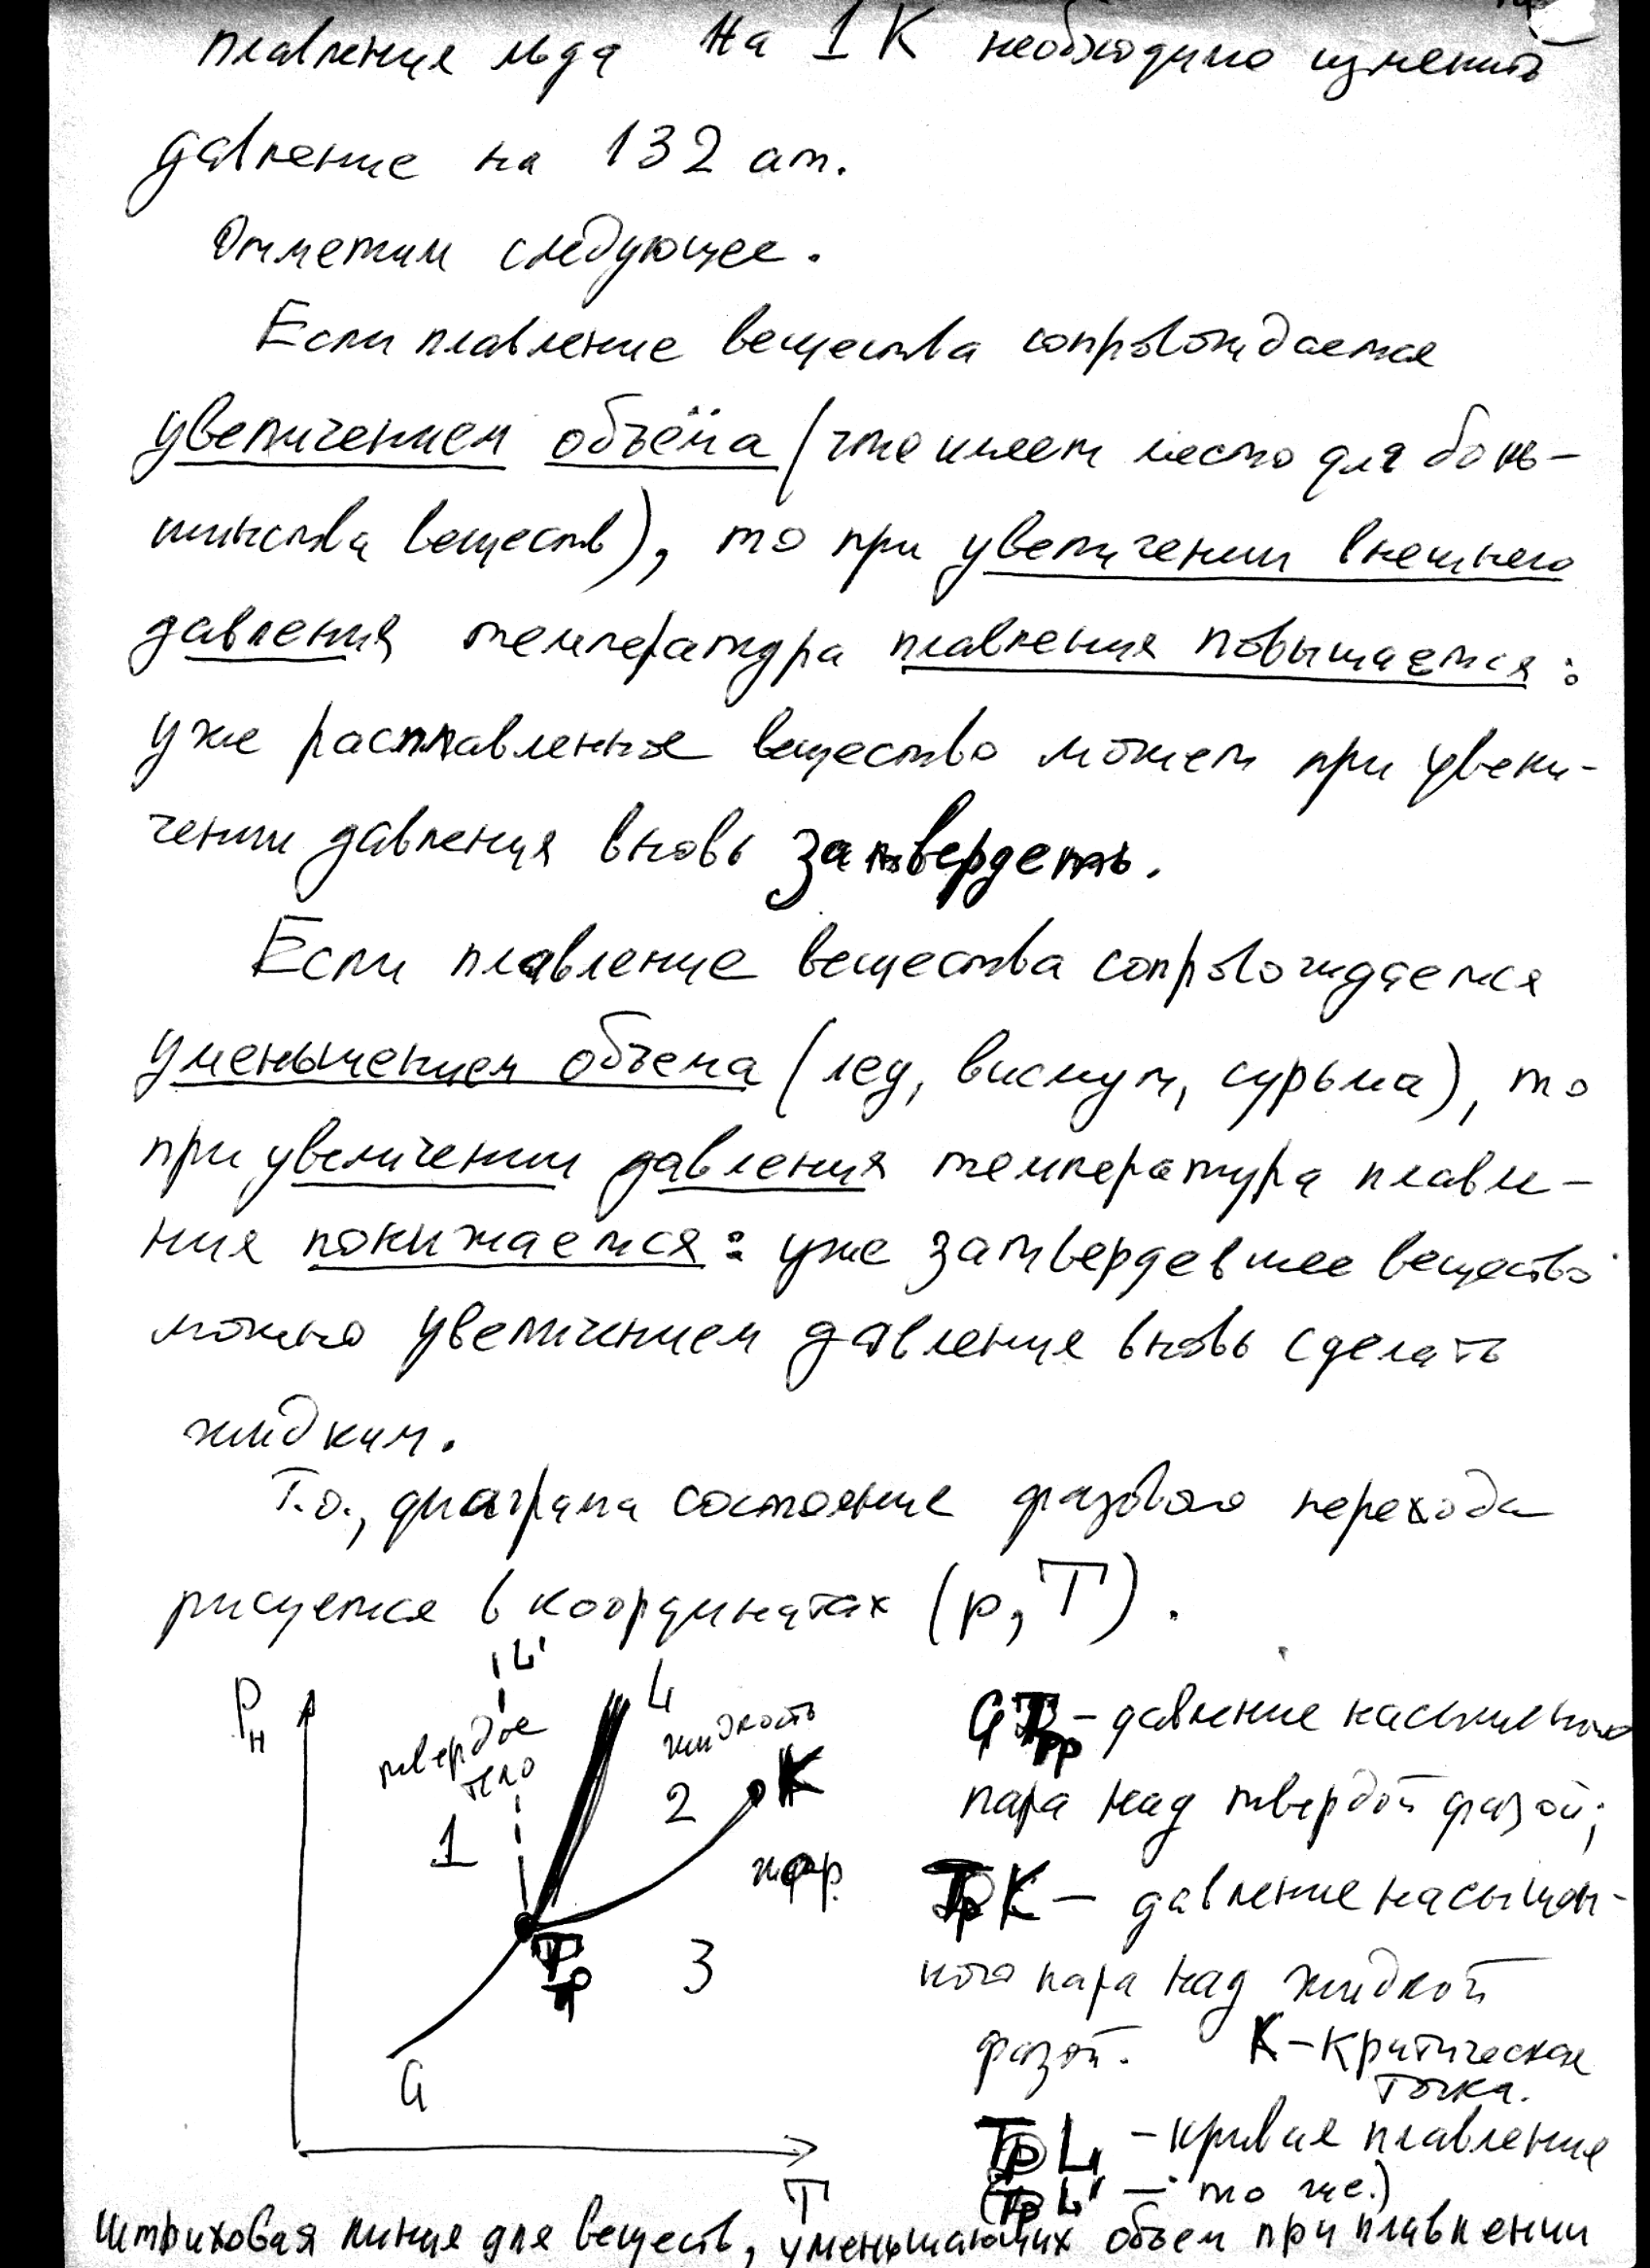 плавления льда на 1 К необходимо изменить
давление на 132 ат.
Отметим следующее.
Если плавление вещества сопровождается
увеличением объёма (что имеет место для боль-
шинства веществ), то при увеличении внешнего
давления температура плавления повышается:
уже расплавленное вещество может при увели-
чении давления вновь затвердеть.
Если плавление вещества сопровождается
уменьшением объема (лед, висмут, сурьма), то
при увеличении давления температура плавле-
ния понижается: уже затвердевшее вещество
можно увеличением давления вновь сделать
жидким.
Т.о., диаграма состояние фазового перехода
рисуется в координатах (p, T).
Pн
L'
L
твердое
тело
жидкость
К
1
2
пар.
Тр
3
G
T
GТр - давление насыщенного
пара над твердой фазой;
ТрК - давление насыщен-
ного пара над жидкой
фазой. К - критическая
точка.
ТрL - кривая плавления
(ТрL' - то же.)
Штриховая линия для веществ, уменьшающих объем при плавлении